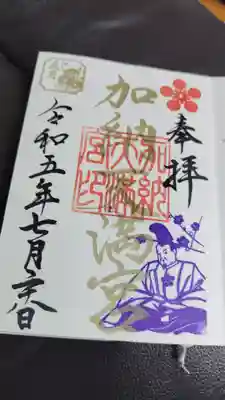 奉拝
加納天満宮
加納
天満
宮印
令和五年七月